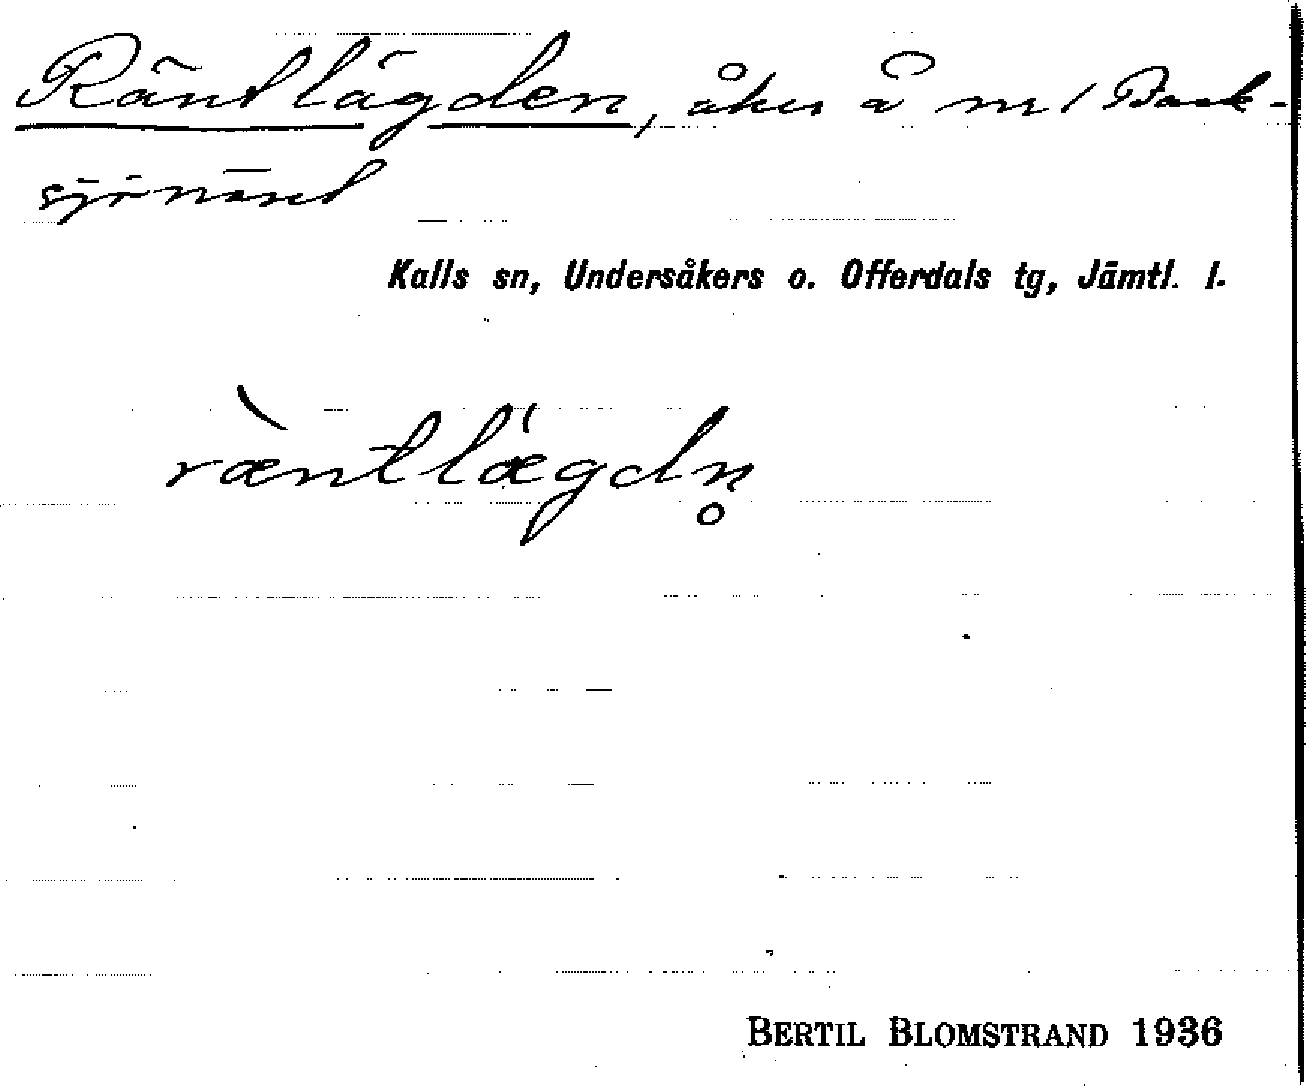 Räntlägden, åker å nr 1 Back-
sjönäset
Kalls sn, Undersåkers o. Offerdals tg, Jämtl. l.
ræ̀ntlæ̍gdn̥
BERTIL BLOMSTRAND 1936